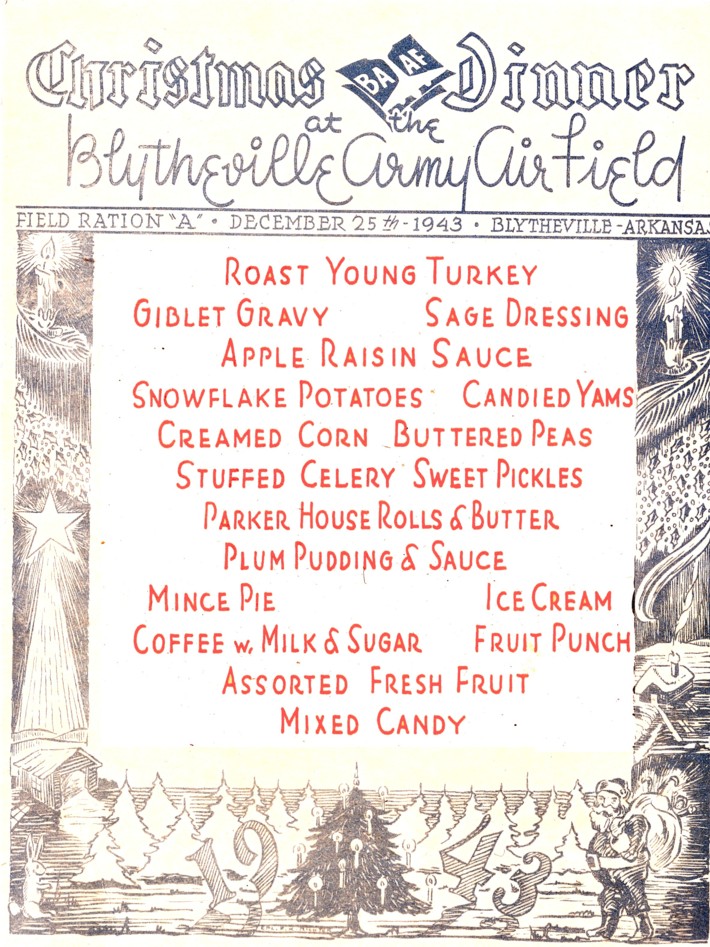 Christmas BAAF Dinner
at the
Blytheville Army Air Field
FIELD RATION "A" • DECEMBER 25th - 1943 • BLYTHEVILLE - ARKANSAS
ROAST YOUNG TURKEY
GIBLET GRAVY SAGE DRESSING
APPLE RAISIN SAUCE
SNOWFLAKE POTATOES CANDIED YAMS
CREAMED CORN BUTTERED PEAS
STUFFED CELERY SWEET PICKLES
PARKER HOUSE ROLLS & BUTTER
PLUM PUDDING & SAUCE
MINCE PIE ICE CREAM
COFFEE w. MILK & SUGAR FRUIT PUNCH
ASSORTED FRESH FRUIT
MIXED CANDY
1943